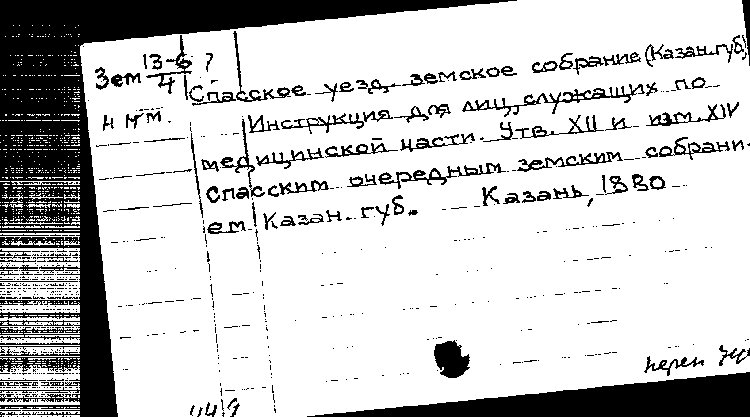 Зем 13-6 ?
4
Спасское уезд. земское собрание (Казан. губ)
Инструкция для лиц, служащих по
медицинской части. Утв. XII и изм. XIV
спасским очередным земским собрани-
ем Казан. губ. Казань, 1880